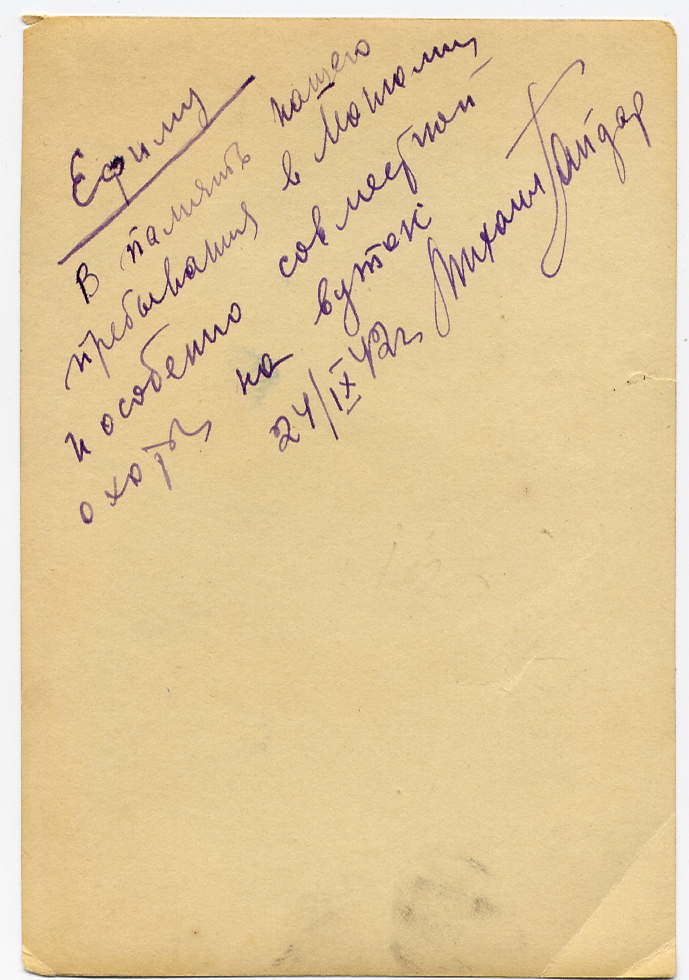 Ефиму
В память нашего
пребывания в Монголии
и особенно совместной
охоты на вуток
24/IX 42г. Михаил Гайдар